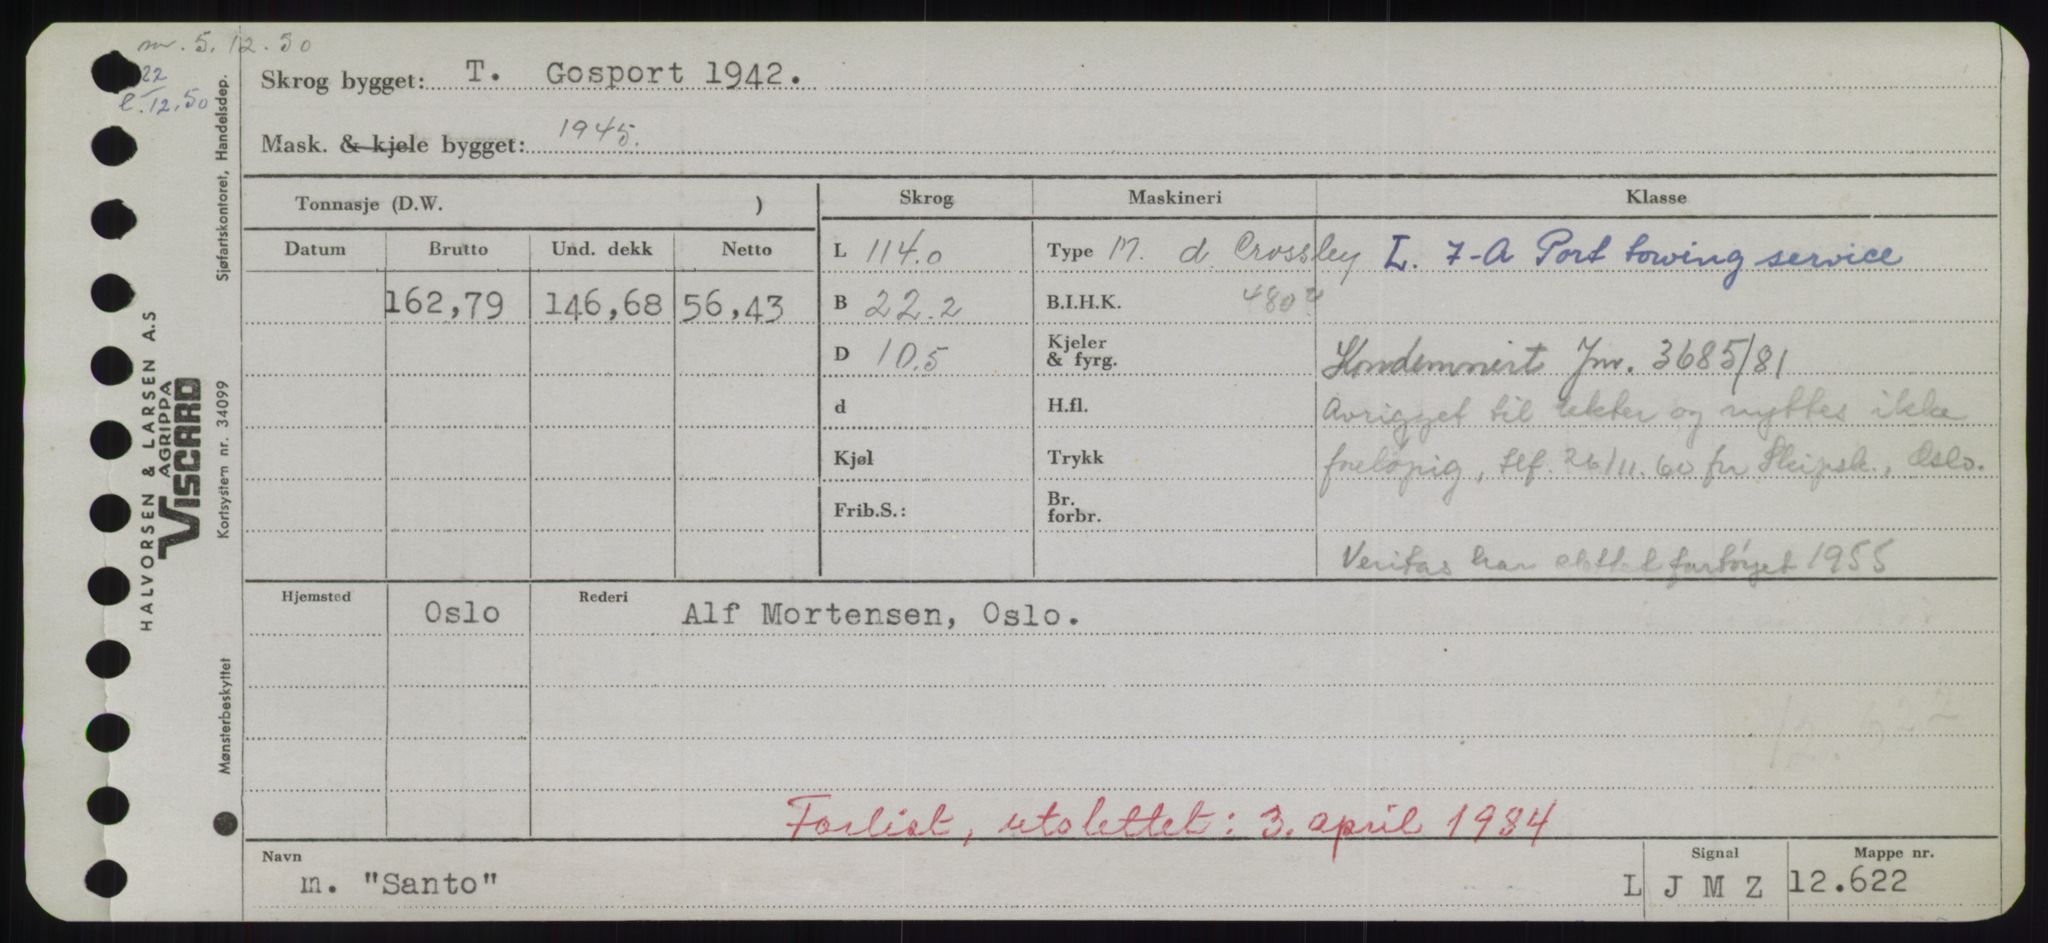 m. 5.12.50
22
e. 12.50
Skrog bygget: T. Gosport 1942.
Mask. & kjele bygget: 1945.
Tonnasje (D.W. )
Skrog
Maskineri
Klasse
Datum Brutto Und. dekk Netto
162,79 146,68 56,43
L 114.0
B 22.2
D 10.5
d
Kjøl
Frib.S.:
Type M. d. Crossley
B.I.H.K. 480
Kjeler
& fyrg.
H.fl.
Trykk
Br.
forbr.
L. 7-A Port towing service
Kondemnert Jnr. 3685/81
Avrigget til lekter og nyttes ikke
foreløpig, tlf. 26/11.60 fr Skipsk., Oslo.
Veritas har slettet fartøyet 1955
Hjemsted Oslo Rederi Alf Mortensen, Oslo.
12.622
Forlist, utslettet: 3. april 1984
Navn
m. "Santo"
Signal
L J M Z
Mappe nr.
12.622
Sjøfartskontoret, Handelsdep.
Kortsystem nr. 34099
Mønsterbeskyttet
HALVORSEN & LARSEN A.S
AGRIPPA
VISCARD